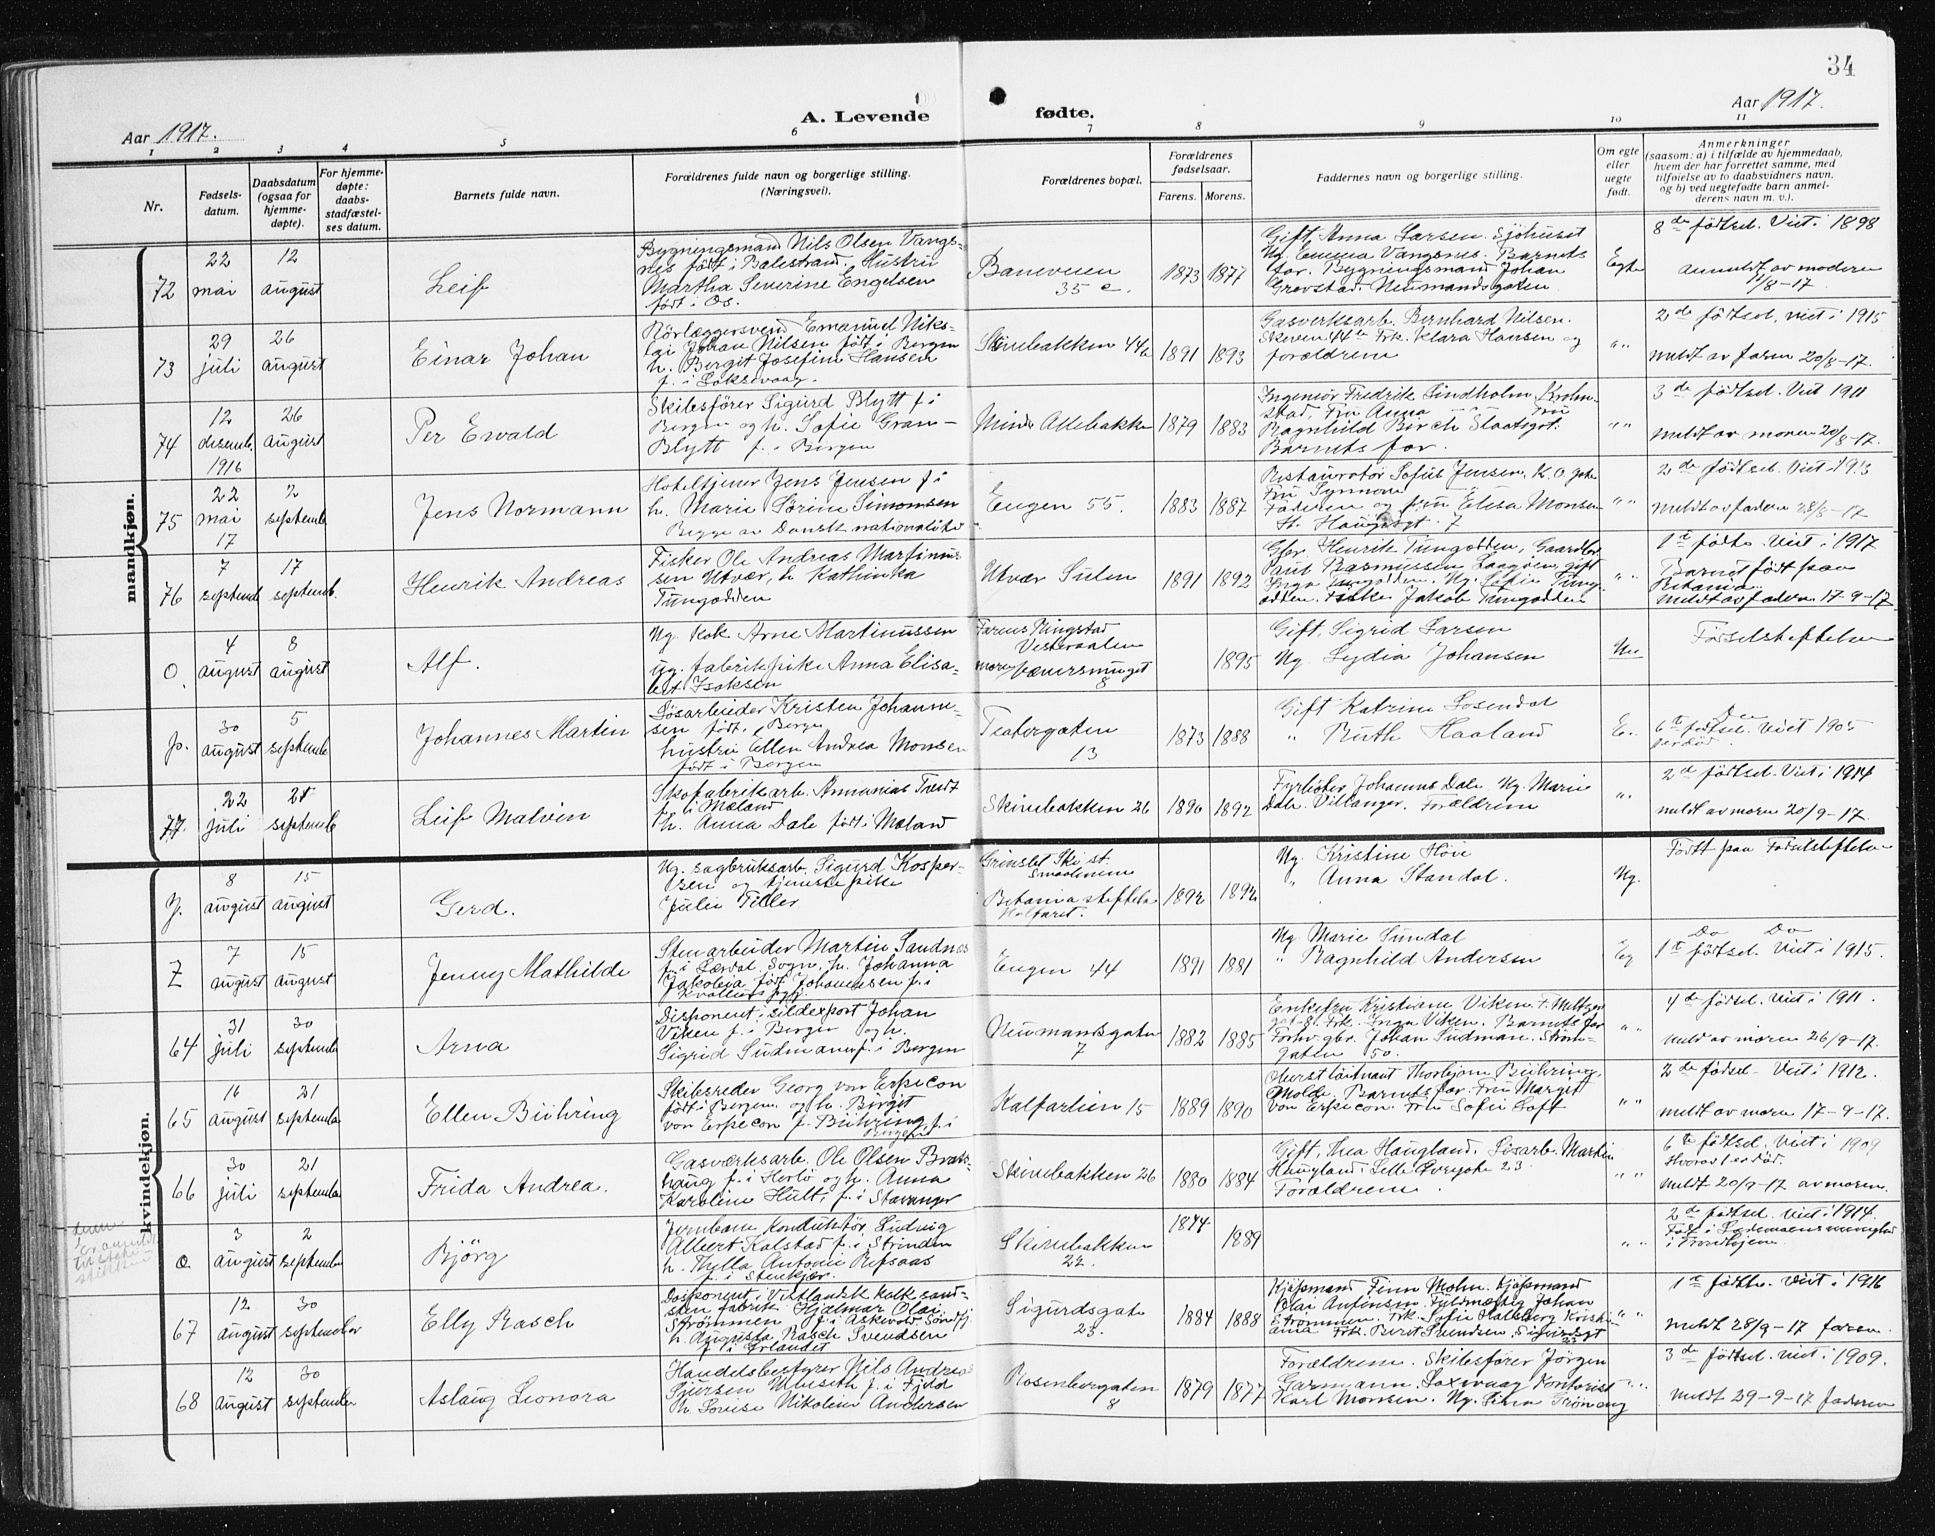 34
Aar 1917.
A. Levende
fødte.
Aar 1917.
1 2 3 4 5 6 7 8 9 10 11
Nr.
Fødsels-
datum.
Daabsdatum
(ogsaa for
hjemme-
døpte).
For hjemme-
døpte:
daabs-
stadfæstel-
ses datum.
Barnets fulde navn.
Forældrenes fulde navn og borgerlige stilling.
(Næringsvei).
Forældrenes bopæl.
Forældrenes
fødselsaar.
Farens. Morens.
Faddernes navn og borgerlige stilling.
Om egte
eller
uegte
født.
Anmerkninger
(saasom: a) i tilfælde av hjemmedaab,
hvem der har forrettet samme, med
tilføielse av to daabsvidners navn,
og b) ved uegtefødte barn anmel-
derens navn m. v.).
mandkjøn.
72
22
mai
12
august
Leif
Bygningsmand Nils Olsen Vangs-
nes født i Balestrand. Hustru
Martha Severine Engelsen
født i Os.
Baneveien
35 c.
1873 1877
Gift Anna Larsen. Sjøhuset
Ug. Emma Vangsnes. Barnets
far. Bygningsmand Johan
Grevstad Neumandsgaten.
Egte
8de fødsel. Viet i 1898
anmeldt av moderen
11/8-17.
73
29
juli
26
august
Einar Johan
Rørlæggersvend Emanuel Niko-
lai Johan Nilsen født i Bergen
h. Bergit Josefine Hansen
f. i Laksevaag.
Skivebakken 44a
1891 1893
Gasverksarb. Bernhard Nilsen.
Skiven 44a Frk. Klara Hansen og
forældrene
" "
2de fødsel. viet i 1915
meldt av faren 20/8-17.
74
12
desemb.
1916
26
august
Per Ewald
Skibsfører Sigurd Blytt f. i
Bergen og h. Sofie Gran-
Blytt f. i Bergen
Minde Allebakken
1879 1883
Ingeniør Fredrik Lindholm, Krohn-
stad, Fru Anna Fru
Ragnhild Birch Slaatsgt.
Barnets far.
" "
3de fødsel. Viet 1911
meldt av moren 20/8-17.
75
22
mai
17
2
septemb
Jens Normann
Hoteltjener Jens Jensen f. i
h. Marie Sørine Simonsen
Begge av Dansk nationalitet
Engen 55.
1883 1887
Restauratør Sofus Jensen, K. O. gt.
Fru Synnøve
Faderen og fru Elisa Monsen
St. Haugsgt. 7
" "
2de fødsel. Viet 1913
meldt av faderen 28/8-17
76
7
septemb
17
septemb.
Henrik Andreas
Fisker Ole Andreas Martinus-
sen Utvær, h. Kathinka
Tungodden
Utvær Sulen
1891 1892
Gbr. Henrik Tungodden, Gaardbr.
Paul Rasmussen Laagøen, gift
Inga Tungodden. Ug. Sofie Tung-
odden. Fisker Jakob Tungodden
" "
1te fødte Viet i 1917
Barnet født paa
Betania.
meldt av faderen 17-9-17
O.
4
august
8
august
Alf.
Ug. Kok Arne Martinussen
ug. fabrikpike Anna Elisa-
bet Isaksen
Farens Ringstad
Vesteraalen
moren Vænersmuget
8
1895
Gift, Sigrid Larsen
Ug. Lydia Johansen
Ue.
Fødselsstiftelsen
p.
30
august
5
septemb
Johannes Martin
Løsarbeider Kristen Johanne-
sen født i Bergen
hustru Ellen Andrea Monsen
født i Bergen
Teatergaten
13
1873 1888
Gift Katrine Losendal
" Ruth Haaland
E.
Do
6te fødsel. Viet 1905
77.
22
juli
21
septemb
Leif Malvin
Skofabrikarb. Annanias Tredt
f. i Mæland
h. Anna Dale født i Mæland
Skivebakken 26
1890 1892
Fyrbøter Johannes Dale Ug. Marie
Dale. Villanger. Forældrene
" "
2de fødsel. Viet i 1914
meldt av moren 20/9-17.
kvindekjøn.
Y.
8
august
15
august
Gerd.
Ug. sagbruksarb. Sigurd Kasper-
sen og tjenestepike
Julie Tiller
Grinslet Ski st.
Smaalenene
Betania stiftelse
Kalfaret.
1892 1892
Ug. Kristine Høie
" Anna Standal.
Ug.
Født paa Fødselstiftelsen
Z
7
august
15
august
Jenny Mathilde
Stenarbeider Martin Sandnes
f. i Lærdal, Sogn, h. Johanna
Jakobea født Johannesen f. i
Engen 44
1891 1881
Ug Marie Sundal
" Ragnhild Andersen
Eg
Do Do
1te fødsel. Viet i 1915.
64
31
juli
30
septemb
Arna
Disponent i sildexport Johan
Viken f. i Bergen og h.
Sigrid Sudmann f. i Bergen
Neumandsgaten
7
1882 1885
Enkefru Kristiane Viken F. Meltzer
gt 8. Frk. Inga Viken. Barnets far
Forhv. gbr. Johan Sudman. Strøm-
gaten 50.
" "
4de fødsel. Viet i 1911.
meldt av moren 26/9-17.
65
16
august
21
septemb
Ellen Bühring
Skibsreder Georg von Erpecon
født i Bergen og h. Birgit
von Erpecon f. Bühring f. i
Bergen
Kalfarlien 15
1889 1890
Oberstløitnant Thorbjørn Bühring,
Molde. Barnets far. Fru Margit
von Erpecon. Frk. Sofie Loft
" "
2de fødsel - Viet i 1912.
meldt av moren 17-9-17.
66
30
juli
21
septemb
Frida Andrea.
Gasværksarb. Ole Olsen Brat-
haug f. i Herlø og h. Anna
Karoline Hult, f. i Stavanger
Skivebakken 26
1880 1884
Gift, Thea Haugland. Løsarb. Martin
Haugland Lille Øvregate 23.
Forældrene
" "
6te fødsel. Viet i 1909
Hvorav 1 er død.
meldt 20/9-17 av moren.
O.
3
august
2
septemb
Bjørg
Jernbane Konduktør Ludvig
Albert Kalstad f. i Strinden
h. Hylla Antonie Refsaas
f. i Stenkjær.
Skivebakken
22.
1884
1889
" "
2de fødsel. Viet i 1914.
i Trondhjem.
67
12
august
30
september
Elly Rasch
Disponent i Vestlandsk kalk sand-
sten fabrik Hjalmar Olai
Strømmen f. i Askevold Sønfj
h. Augusta Rasch Svendsen
f. i Ørlandet
Sigurdsgate
23.
1884 1888
Kjøpmand Finn Mohn. Kjøpmand
Olai Antonsen. Fuldmægtig Johan
Strømmen. Frk. Sofie Halsberg Kristi-
ania Frk. Berit Svendsen. Sigurdsgt
23
" "
1te fødte. Viet i 1916
meldt 28/9-17 faren.
68
12
august
30
september
Aslaug Leonora
Handelsbestyrer Nils Andreas
Sjursen Ulveseth f. i Fjeld
h. Lovise Nikoline Andersen
Rosenbergaten
8
1879 1877
Forældrene. Skibsfører Jørgen
Garmann. Laxevaag Kontorist
Karl Monsen. Ug. Lina Trønaug
" "
3de fødsel. viet i 1909.
meldt 29-9-17 faderen